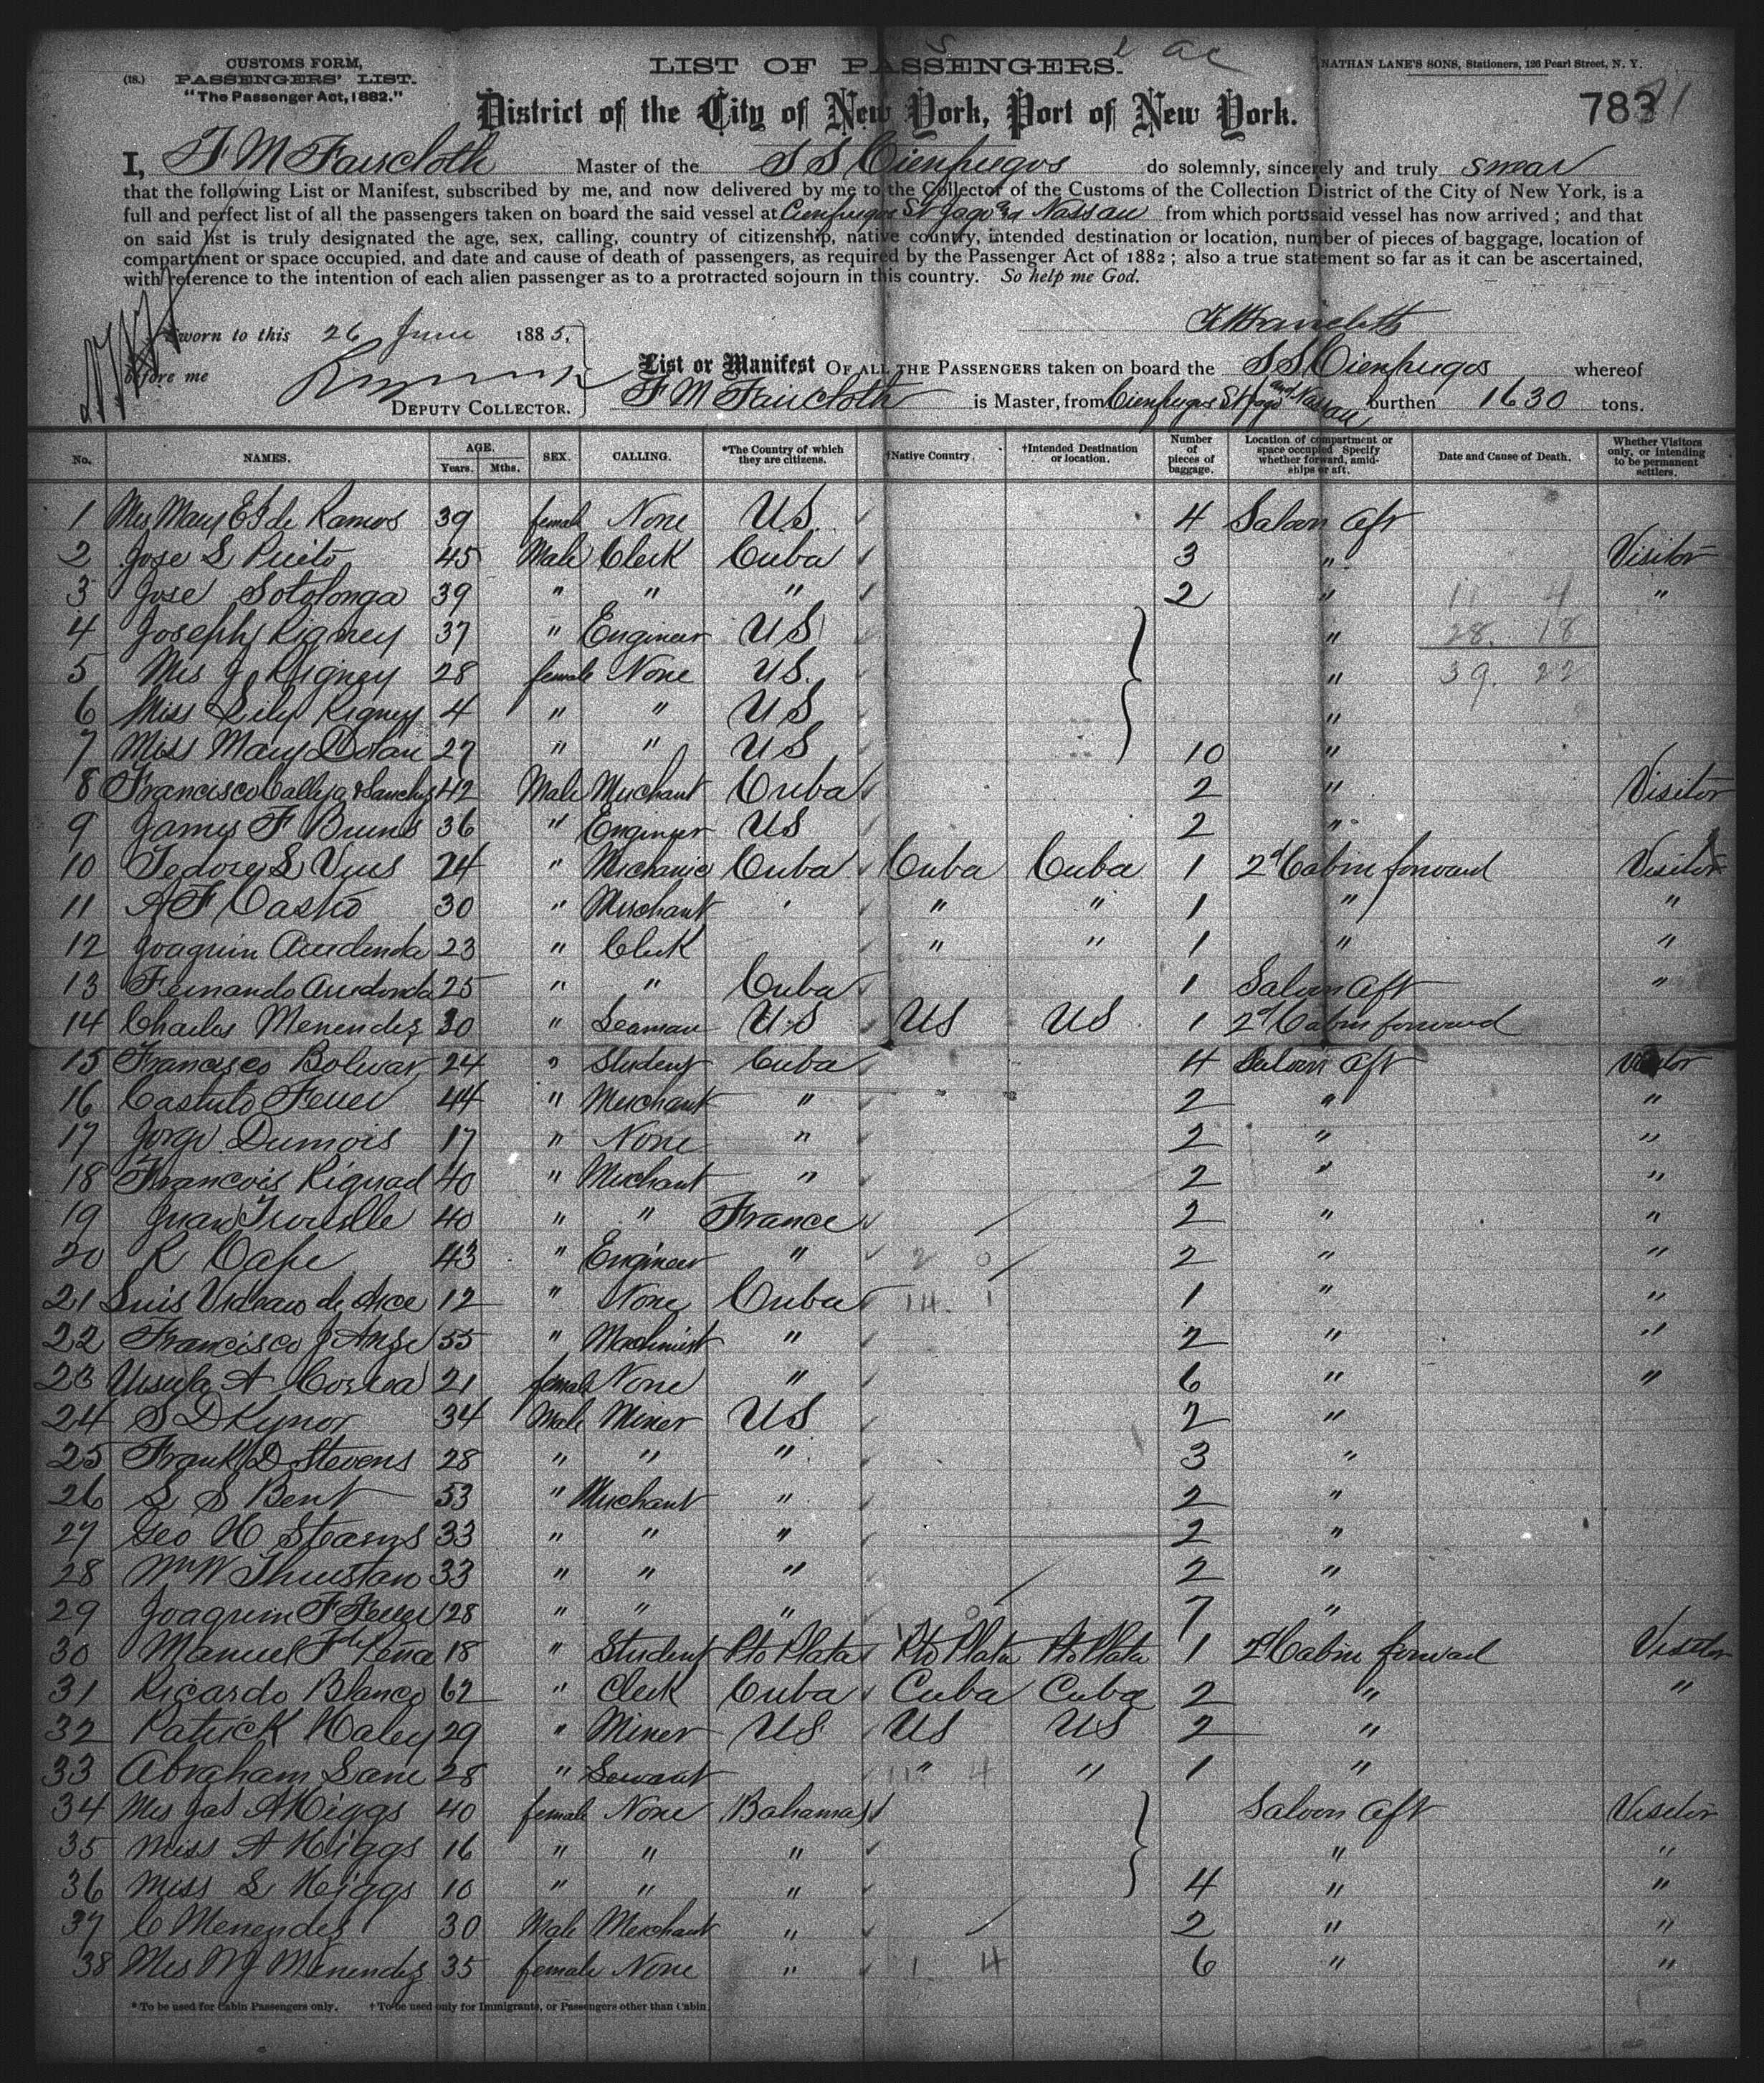 CUSTOMS FORM,
(18.) PASSENGERS' LIST.
"The Passenger Act, 1882."
LIST OF PASSENGERS.
NATHAN LANE'S SONS, Stationers, 126 Pearl Street, N. Y.
District of the City of New York, Port of New York.
783
I, F M Faircloth Master of the S S Cienfuegos do solemnly, sincerely and truly swear
that the following List or Manifest, subscribed by me, and now delivered by me to the Collector of the Customs of the Collection District of the City of New York, is a
full and perfect list of all the passengers taken on board the said vessel at Cienfuegos St Jago and Nassau from which ports said vessel has now arrived; and that
on said list is truly designated the age, sex, calling, country of citizenship, native country, intended destination or location, number of pieces of baggage, location of
compartment or space occupied, and date and cause of death of passengers, as required by the Passenger Act of 1882; also a true statement so far as it can be ascertained,
with reference to the intention of each alien passenger as to a protracted sojourn in this country. So help me God.
Sworn to this 26 June 1885,
before me
DEPUTY COLLECTOR.
F M Faircloth
List or Manifest OF ALL THE PASSENGERS taken on board the S S Cienfuegos whereof
F M Faircloth is Master, from Cienfuegos St Jago and Nassau burthen 1630 tons.
No. NAMES. AGE. Years. Mths. SEX. CALLING. *The Country of which they are citizens. †Native Country. †Intended Destination or location. Number of pieces of baggage. Location of compartment or space occupied Specify whether forward, amidships or aft. Date and Cause of Death. Whether Visitors only, or intending to be permanent settlers.
1 Mrs Mary E J de Ramos 39 female None US 4 Saloon Aft
2 Jose S Prieto 45 Male Clerk Cuba 3 " Visitor
3 Jose Sotolonga 39 " " " 2 " "
4 Joseph Rigney 37 " Engineer US "
5 Mrs J Rigney 28 female None US "
6 Miss Lily Rigney 4 " " US "
7 Miss Mary Dolan 27 " " US 10 "
8 Francisco Calleja & Sanchez 42 Male Merchant Cuba 2 " Visitor
9 James F Bruns 36 " Engineer US 2 "
10 Fedore S 24 " Mechanic Cuba Cuba Cuba 1 2d Cabin forward Visitor
11 A F Castro 30 " Merchant " " 1 " "
12 Joaquin 23 " Clerk " " 1 " "
13 Fernando Arredonda 25 " " Cuba 1 Saloon Aft "
14 Charles Menendez 30 " Seaman US US US 1 2d Cabin forward
15 Francisco Bolivar 24 " Student Cuba 4 Saloon Aft Visitor
16 Castulo Ferrer 44 " Merchant " 2 " "
17 Jorge Dumois 17 " None " 2 " "
18 Francois Riguad 40 " Merchant " 2 " "
19 Juan 40 " " France 2 " "
20 R Cape 43 " Engineer " 2 " "
21 Luis de Arce 12 " None Cuba 1 " "
22 Francisco J 55 " Machinist " 2 " "
23 Ursula A Correa 21 female None " 6 " "
24 S D Kynor 34 Male Miner US 2 "
25 Frank D Stevens 28 " " " 3 "
26 S S Bent 53 " Merchant " 2 "
27 Geo H Stearns 33 " " " 2 "
28 Wm W Thurstan 33 " " " 2 "
29 Joaquim F Ferrer 28 " " " 7 "
30 Manuel F de Pena 18 " Student Pto Plata Pto Plata Pto Plata 1 2d Cabin forward Visitor
31 Ricardo Blanco 62 " Clerk Cuba Cuba Cuba 2 " "
32 Patrick Haley 29 " Miner US US US 2 "
33 Abraham Lane 28 " Servant " " 1 "
34 Mrs Jas A Higgs 40 female None Bahamas Saloon Aft Visitor
35 Miss A Higgs 16 " " " " "
36 Miss S Higgs 10 " " " 4 " "
37 C Menendez 30 Male Merchant " 2 " "
38 Mrs M J Menendez 35 female None " 6 " "
*To be used for Cabin Passengers only. †To be used only for Immigrants, or Passengers other than Cabin